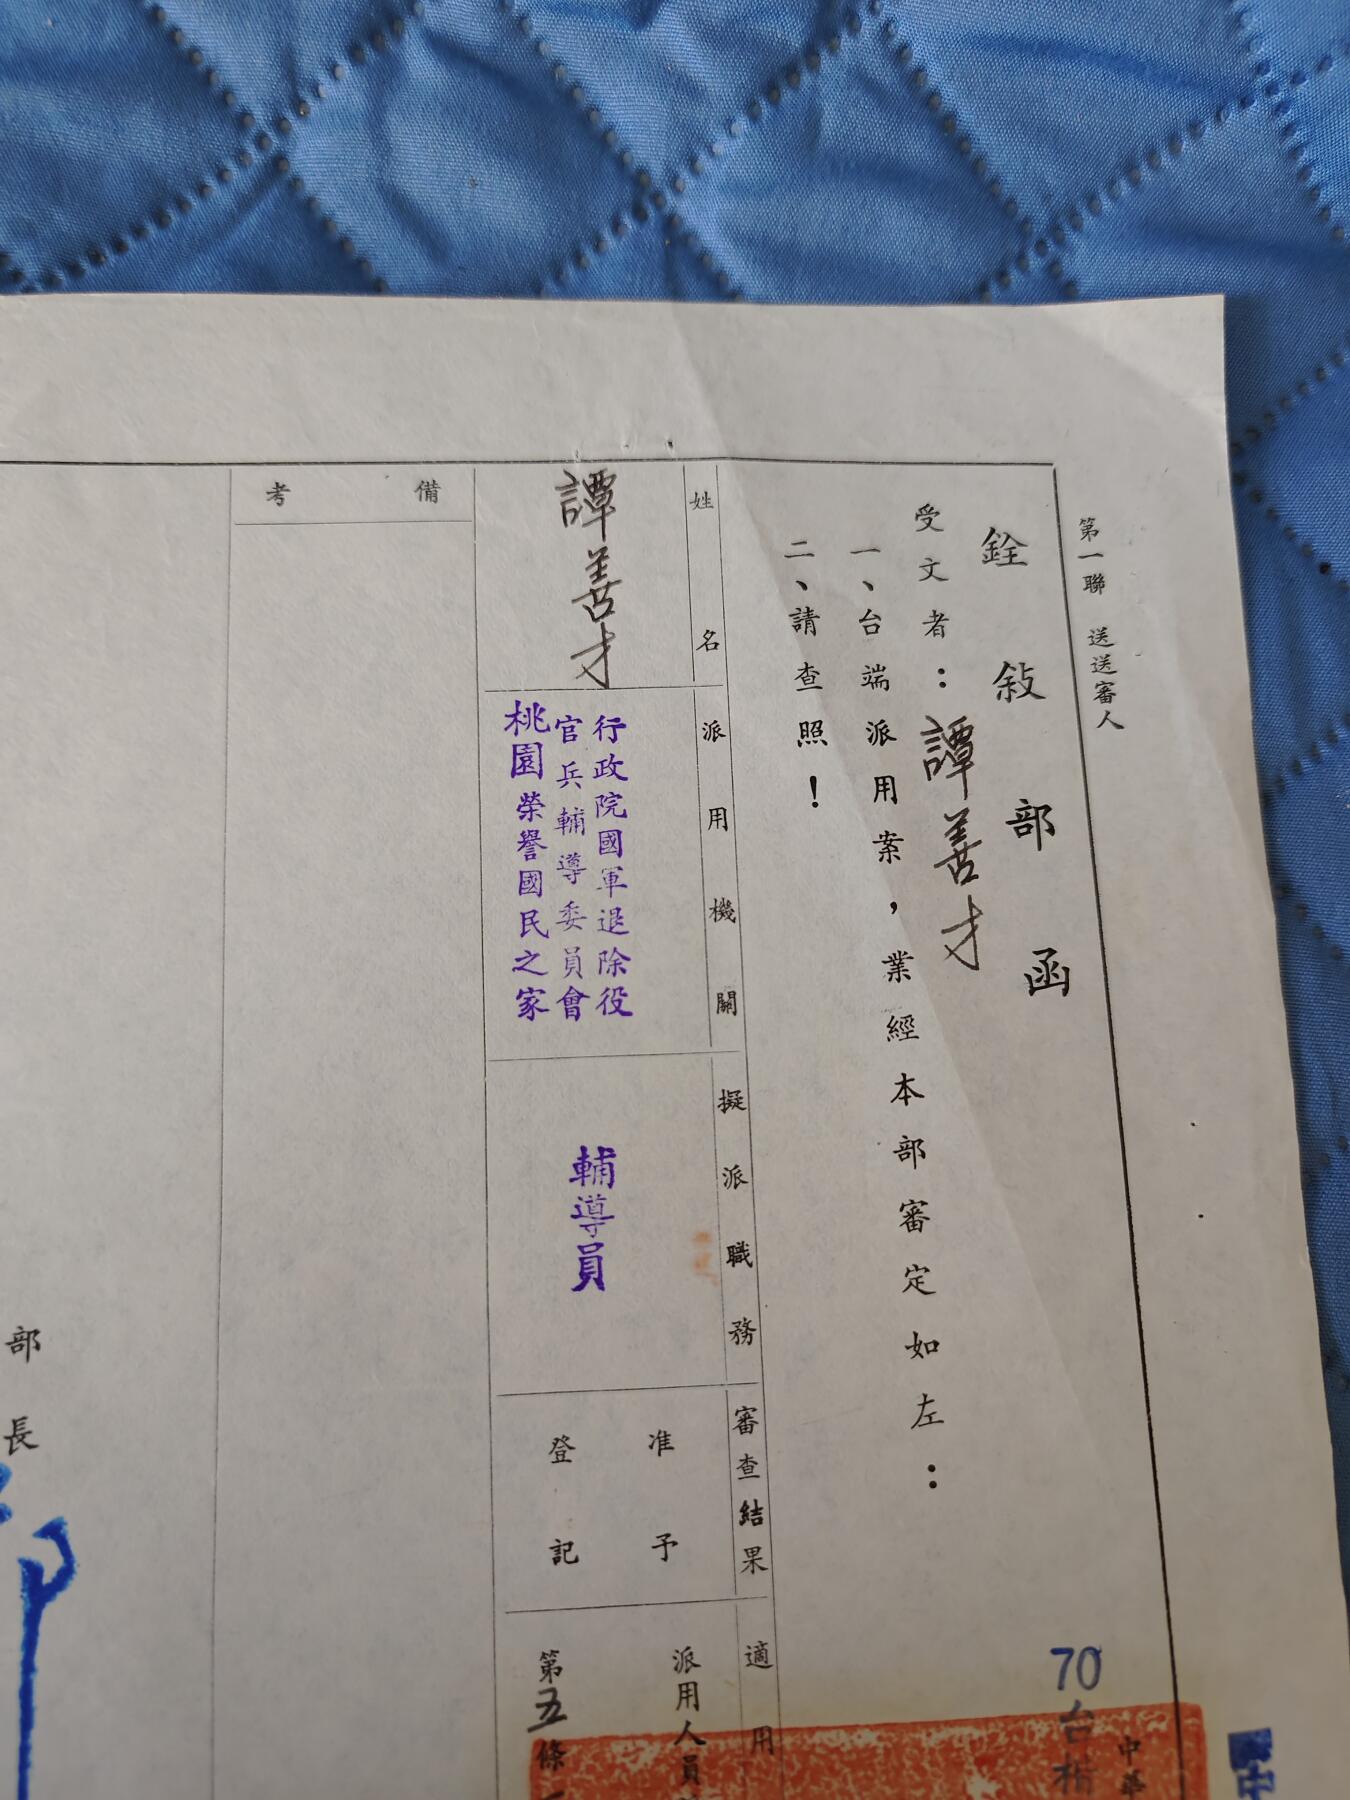 第一聯 送送審人
銓敍部函
受文者：譚善才
一、台端派用案，業經本部審定如左：
二、請查照！
姓名
譚善才
派用機關
行政院國軍退除役
官兵輔導委員會
桃園榮譽國民之家
擬派職務
輔導員
審查結果
准予
登記
適用
派用人員
第五條
備考
部長
70台
中華